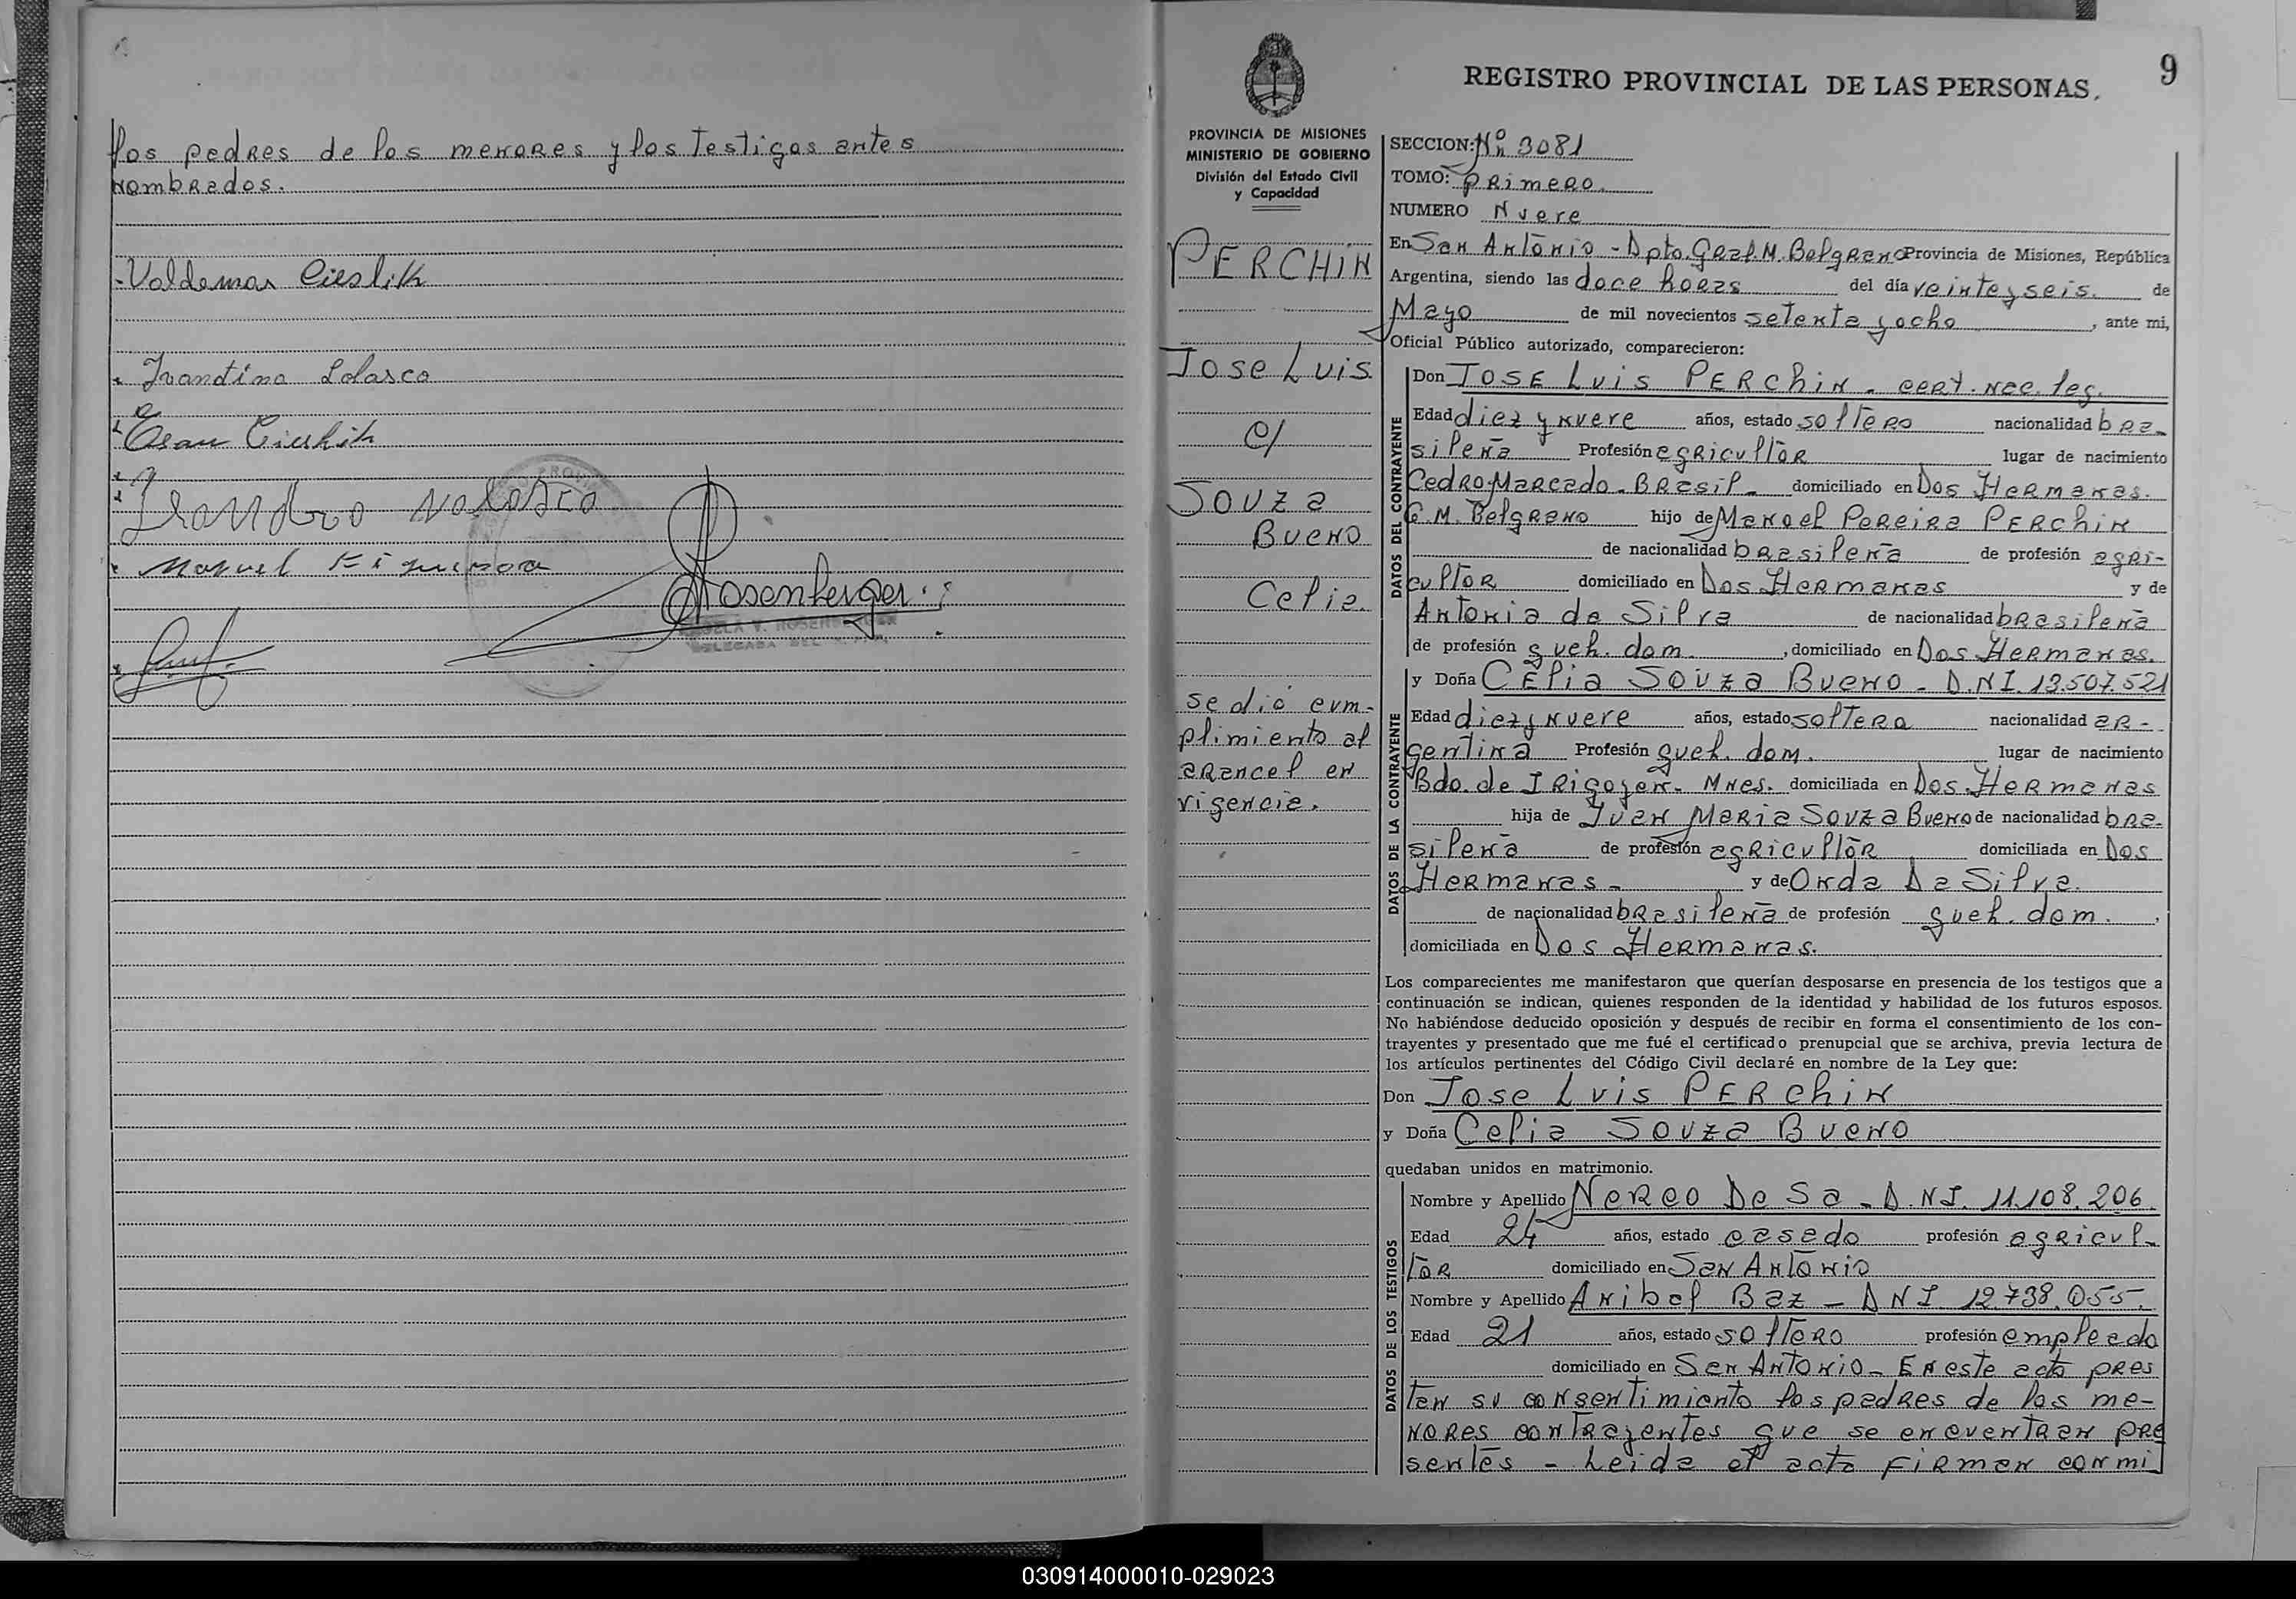 los padres de los menores y los testigos antes
nombrados.
Valdemar Cieslik
Ivandina Lolasco
Manuel
Rosenberger
9
REGISTRO PROVINCIAL DE LAS PERSONAS.
PROVINCIA DE MISIONES
MINISTERIO DE GOBIERNO
División del Estado Civil
y Capacidad
PERCHIN
Jose Luis
c/
Souza
Bueno
Celia.
se dió cum-
plimiento al
arancel en
vigencia.
SECCION: Nº 3081
TOMO: primero.
NUMERO Nueve
En San Antonio - Dpto. Gral. M. Belgrano Provincia de Misiones, República
Argentina, siendo las doce horas del día veinte y seis. de
Mayo de mil novecientos setenta y ocho, ante mi,
Oficial Público autorizado, comparecieron:
DATOS DEL CONTRAYENTE
Don JOSE Luis PERChin - cert. nac. leg.
Edad diez y nueve años, estado soltero nacionalidad bra-
sileña Profesión agricultor lugar de nacimiento
Cedro Marcado - Brasil - domiciliado en Dos Hermanas.
G. M. Belgrano hijo de Manoel Pereira PERChin
de nacionalidad brasileña de profesión agri-
cultor domiciliado en Dos Hermanas y de
Antonia da Silva de nacionalidad brasileña
de profesión queh. dom. , domiciliado en Dos Hermanas.
DATOS DE LA CONTRAYENTE
y Doña Celia Souza Bueno - D.N.I. 13.507.521
Edad diez y nueve años, estado soltera nacionalidad ar-
gentina Profesión queh. dom. lugar de nacimiento
Bdo. de Irigoyen - Mnes. domiciliada en Dos Hermanas
hija de Juan Maria Souza Bueno de nacionalidad bra-
sileña de profesión agricultor domiciliada en Dos
Hermanas - y de Onda Da Silva.
de nacionalidad brasileña de profesión queh. dom. ,
domiciliada en Dos Hermanas.
Los comparecientes me manifestaron que querían desposarse en presencia de los testigos que a
continuación se indican, quienes responden de la identidad y habilidad de los futuros esposos.
No habiéndose deducido oposición y después de recibir en forma el consentimiento de los con-
trayentes y presentado que me fué el certificado prenupcial que se archiva, previa lectura de
los artículos pertinentes del Código Civil declaré en nombre de la Ley que:
Don Jose Luis PERChin
y Doña Celia Souza Bueno
quedaban unidos en matrimonio.
DATOS DE LOS TESTIGOS
Nombre y Apellido Nereo De Sa - D.N.I. 11.108.206.
Edad 24 años, estado casado profesión agricul-
tor domiciliado en San Antonio
Nombre y Apellido Anibal Baz - DNI 12.738.055.
Edad 21 años, estado soltero profesión empleado
domiciliado en San Antonio - En este acto pres
tan su consentimiento los padres de los me-
nores contrayentes que se encuentran pre
sentes - Leida el acta firman con mi
030914000010-029023